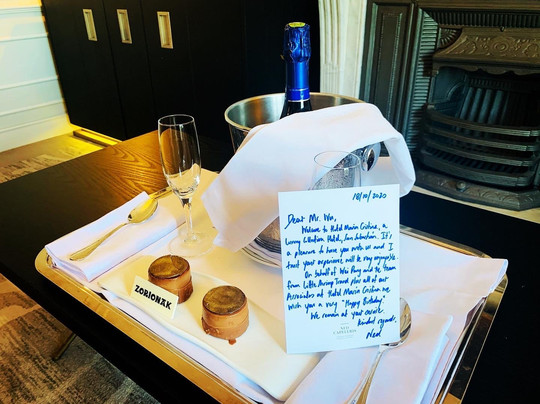 18/10/2020
Dear Mr. Wu,
Welcome to Hotel Maria Cristina, a
Luxury Collection Hotel, San Sebastian. It's
a pleasure to have you with us and I
trust your experience will be very enjoyable.
On behalf of Wei Pong and the team
from Little Airway Travel plus all of our
Associates at Hotel Maria Cristina we
wish you a very "Happy Birthday".
We remain at your service
Kindest regards,
Ned
NED
CAPELERIS
ZORIONAK